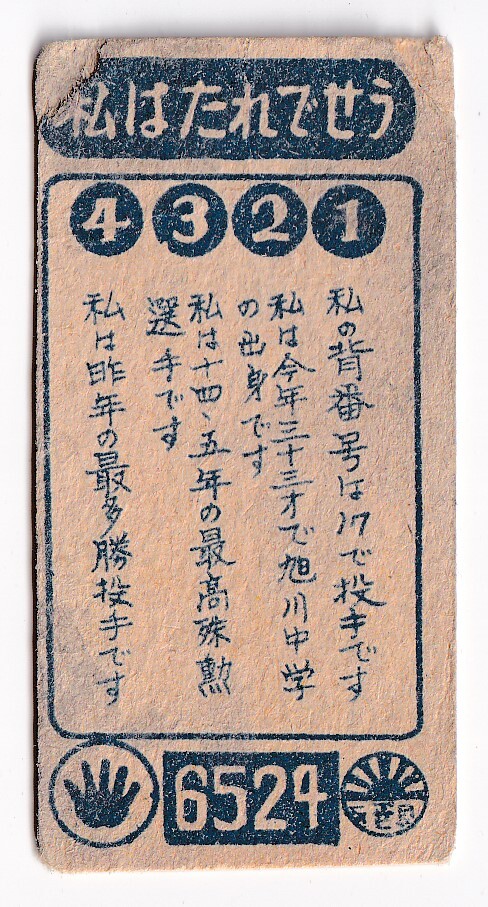 私はたれでせう
1
私の背番号は17で投手です
2
私は今年三十三才で旭川中学
の出身です
3
私は十四、五年の最高殊勲
選手です
4
私は昨年の最多勝投手です
6524